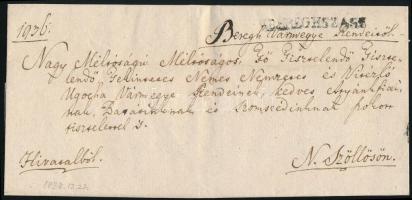 1936.
BEREGHSZASZ
Beregh Vármegye Rendeitől.
Nagy Méltóságu Méltóságos, Fő Tisztelendő Tiszte-
lendő, Tekintetes Nemes Nemzetes és Vitézlő
Ugocsa Vármegye Rendeinek, kedves Atyánkfiai-
nak, Barátinknak és Szomszédinknak
tisztelettel
Hivatalból.
N. Szöllősön.